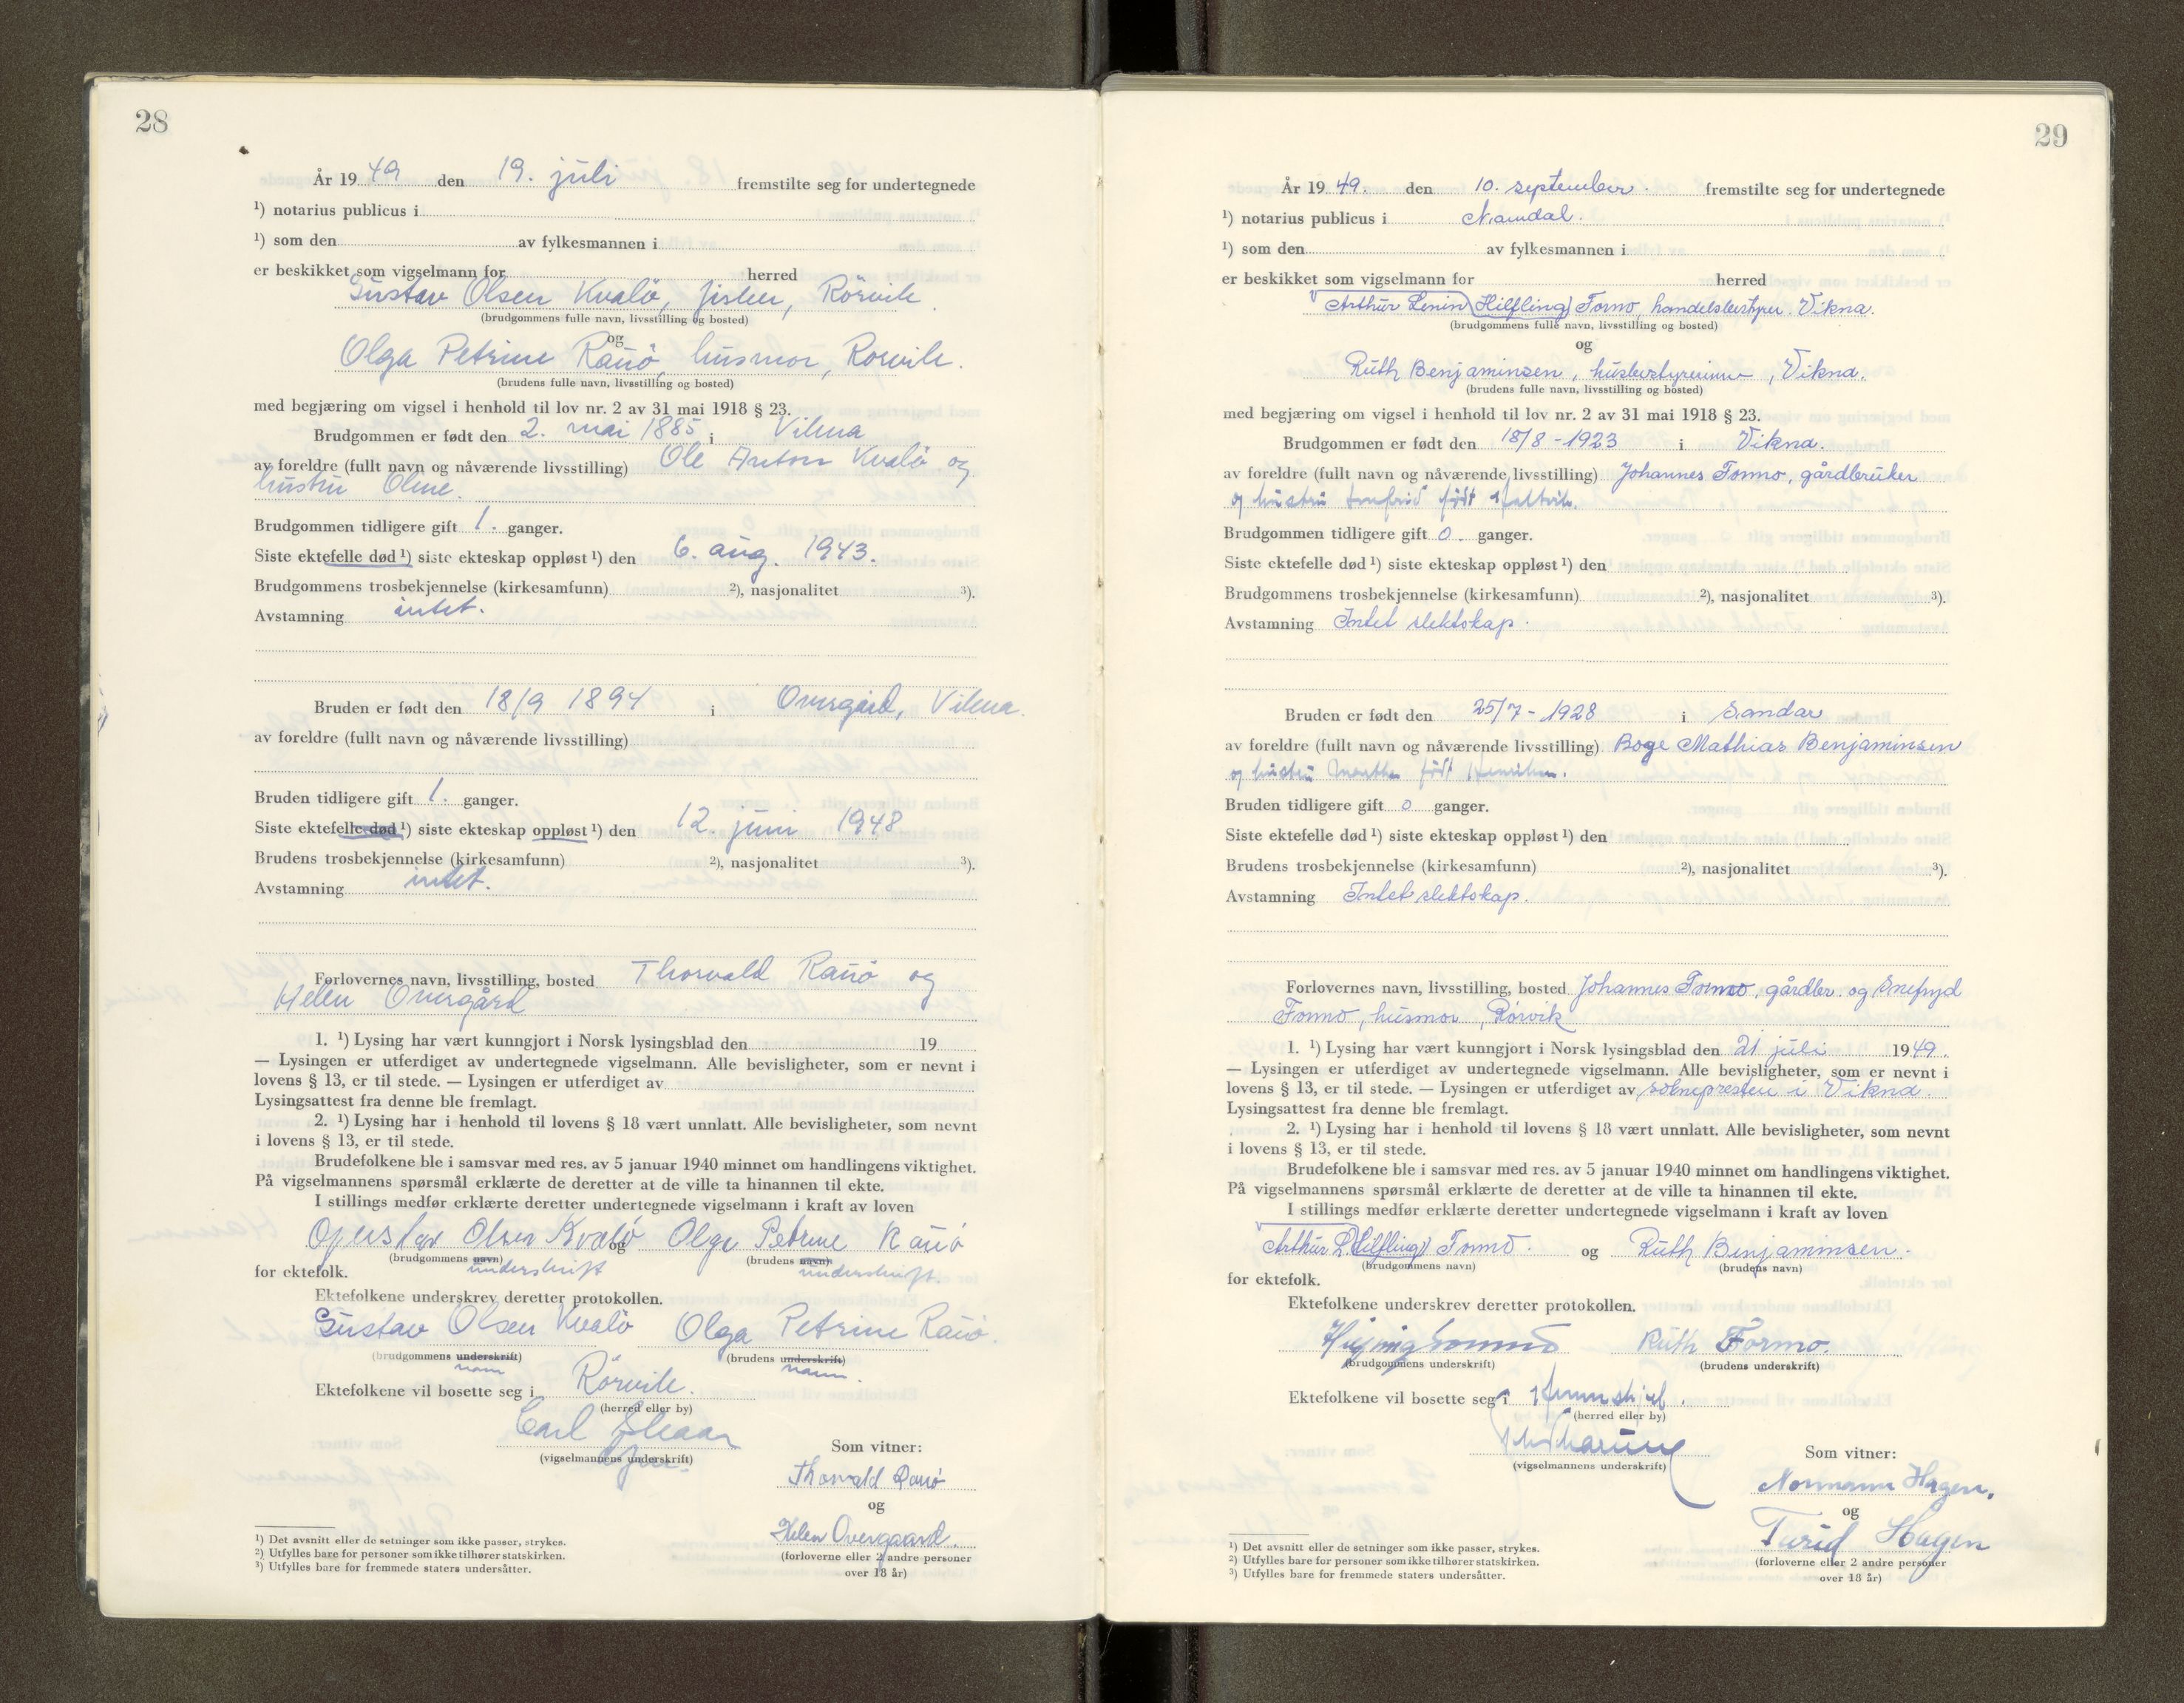 28
År 19 49 den 19. juli fremstilte seg for undertegnede
¹) notarius publicus i
¹) som den av fylkesmannen i
er beskikket som vigselmann for herred
Gustav Olsen Kvalö, fisker, Rörvik.
(brudgommens fulle navn, livsstilling og bosted)
og
Olga Petrine Rauö, husmor, Rörvik.
(brudens fulle navn, livsstilling og bosted)
med begjæring om vigsel i henhold til lov nr. 2 av 31 mai 1918 § 23.
Brudgommen er født den 2. mai 1885 i Vikna
av foreldre (fullt navn og nåværende livsstilling) Ole Anton Kvalö og
hustru
Brudgommen tidligere gift 1. ganger.
Siste ektefelle død ¹) siste ekteskap oppløst ¹) den 6. aug. 1943.
Brudgommens trosbekjennelse (kirkesamfunn) ²), nasjonalitet ³).
Avstamning intet.
Bruden er født den 18/9 1894 i Oversgård, Vikna.
av foreldre (fullt navn og nåværende livsstilling)
Bruden tidligere gift 1. ganger.
Siste ektefelle død ¹) siste ekteskap oppløst ¹) den 12. juni 1948
Brudens trosbekjennelse (kirkesamfunn) ²), nasjonalitet ³).
Avstamning intet.
Forlovernes navn, livsstilling, bosted Thorvald Rauö og
Helen Oversgård
1. ¹) Lysing har vært kunngjort i Norsk lysingsblad den 19
— Lysingen er utferdiget av undertegnede vigselmann. Alle bevisligheter, som er nevnt i
lovens § 13, er til stede. — Lysingen er utferdiget av
Lysingsattest fra denne ble fremlagt.
2. ¹) Lysing har i henhold til lovens § 18 vært unnlatt. Alle bevisligheter, som nevnt
i lovens § 13, er til stede.
Brudefolkene ble i samsvar med res. av 5 januar 1940 minnet om handlingens viktighet.
På vigselmannens spørsmål erklærte de deretter at de ville ta hinannen til ekte.
I stillings medfør erklærte deretter undertegnede vigselmann i kraft av loven
Gustav Olsen Kvalö og Olga Petrine Rauö
(brudgommens navn) (brudens navn)
underskrift underskrift.
for ektefolk.
Ektefolkene underskrev deretter protokollen.
Gustav Olsen Kvalö Olga Petrine Rauö.
(brudgommens underskrift) (brudens underskrift)
navn navn.
Ektefolkene vil bosette seg i Rörvik.
(herred eller by)
Carl
(vigselmannens underskrift)
Som vitner:
Thorvald Rauö
og
Helen Overgaard.
(forloverne eller 2 andre personer
over 18 år)
¹) Det avsnitt eller de setninger som ikke passer, strykes.
²) Utfylles bare for personer som ikke tilhører statskirken.
³) Utfylles bare for fremmede staters undersåtter.
29
År 19 49. den 10. september. fremstilte seg for undertegnede
¹) notarius publicus i Namdal.
¹) som den av fylkesmannen i
er beskikket som vigselmann for herred
Arthur Lenin (Hilfling) Formo, handelsbestyrer. Vikna.
(brudgommens fulle navn, livsstilling og bosted)
og
Ruth Benjaminsen, husbestyrerinne, Vikna.
(brudens fulle navn, livsstilling og bosted)
med begjæring om vigsel i henhold til lov nr. 2 av 31 mai 1918 § 23.
Brudgommen er født den 18/8 - 1923 i Vikna.
av foreldre (fullt navn og nåværende livsstilling) Johannes Formo, gårdbruker
og hustru født
Brudgommen tidligere gift 0. ganger.
Siste ektefelle død ¹) siste ekteskap oppløst ¹) den
Brudgommens trosbekjennelse (kirkesamfunn) ²), nasjonalitet ³).
Avstamning Intet slektskap.
Bruden er født den 25/7 - 1928 i Sandar
av foreldre (fullt navn og nåværende livsstilling) Boge Mathias Benjaminsen
og hustru Martha født Henriksen.
Bruden tidligere gift 0 ganger.
Siste ektefelle død ¹) siste ekteskap oppløst ¹) den
Brudens trosbekjennelse (kirkesamfunn) ²), nasjonalitet ³).
Avstamning Intet slektskap.
Forlovernes navn, livsstilling, bosted Johannes Formo, gårdbr. og Snefryd
Formo, husmor, Rörvik
1. ¹) Lysing har vært kunngjort i Norsk lysingsblad den 21 juli 19 49.
— Lysingen er utferdiget av undertegnede vigselmann. Alle bevisligheter, som er nevnt i
lovens § 13, er til stede. — Lysingen er utferdiget av soknepresten i Vikna.
Lysingsattest fra denne ble fremlagt.
2. ¹) Lysing har i henhold til lovens § 18 vært unnlatt. Alle bevisligheter, som nevnt
i lovens § 13, er til stede.
Brudefolkene ble i samsvar med res. av 5 januar 1940 minnet om handlingens viktighet.
På vigselmannens spørsmål erklærte de deretter at de ville ta hinannen til ekte.
I stillings medfør erklærte deretter undertegnede vigselmann i kraft av loven
Arthur L. (Hilfling) Formo. og Ruth Benjaminsen.
(brudgommens navn) (brudens navn)
for ektefolk.
Ektefolkene underskrev deretter protokollen.
Ruth Formo.
(brudgommens underskrift) (brudens underskrift)
Ektefolkene vil bosette seg i
(herred eller by)
(vigselmannens underskrift)
Som vitner:
Normann Hagen.
og
Turid Hagen
(forloverne eller 2 andre personer
over 18 år)
¹) Det avsnitt eller de setninger som ikke passer, strykes.
²) Utfylles bare for personer som ikke tilhører statskirken.
³) Utfylles bare for fremmede staters undersåtter.